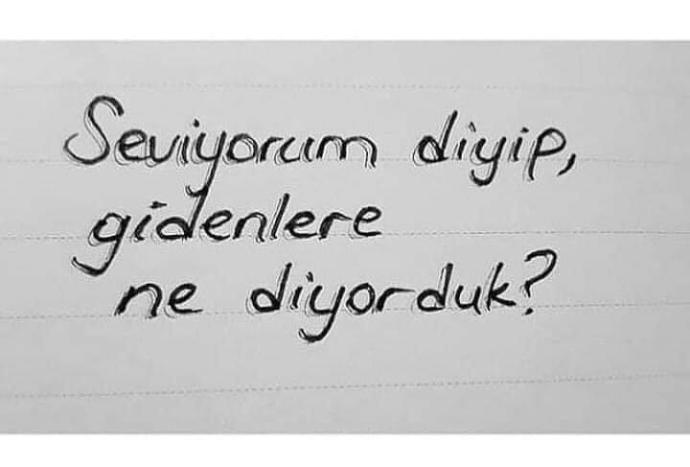 Seviyorum diyip,
gidenlere
ne diyorduk?